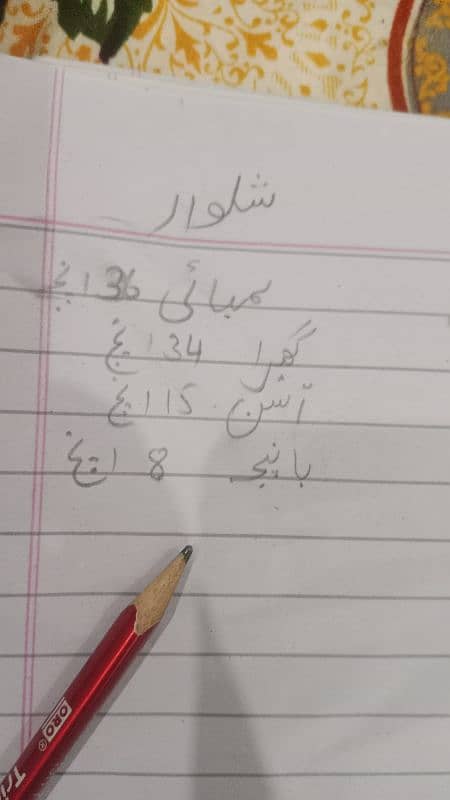 شلوار
لمبائی 36 انچ
گھرا 34 انچ
آسن 15 انچ
پانچہ 8 انچ
ORO
Tri